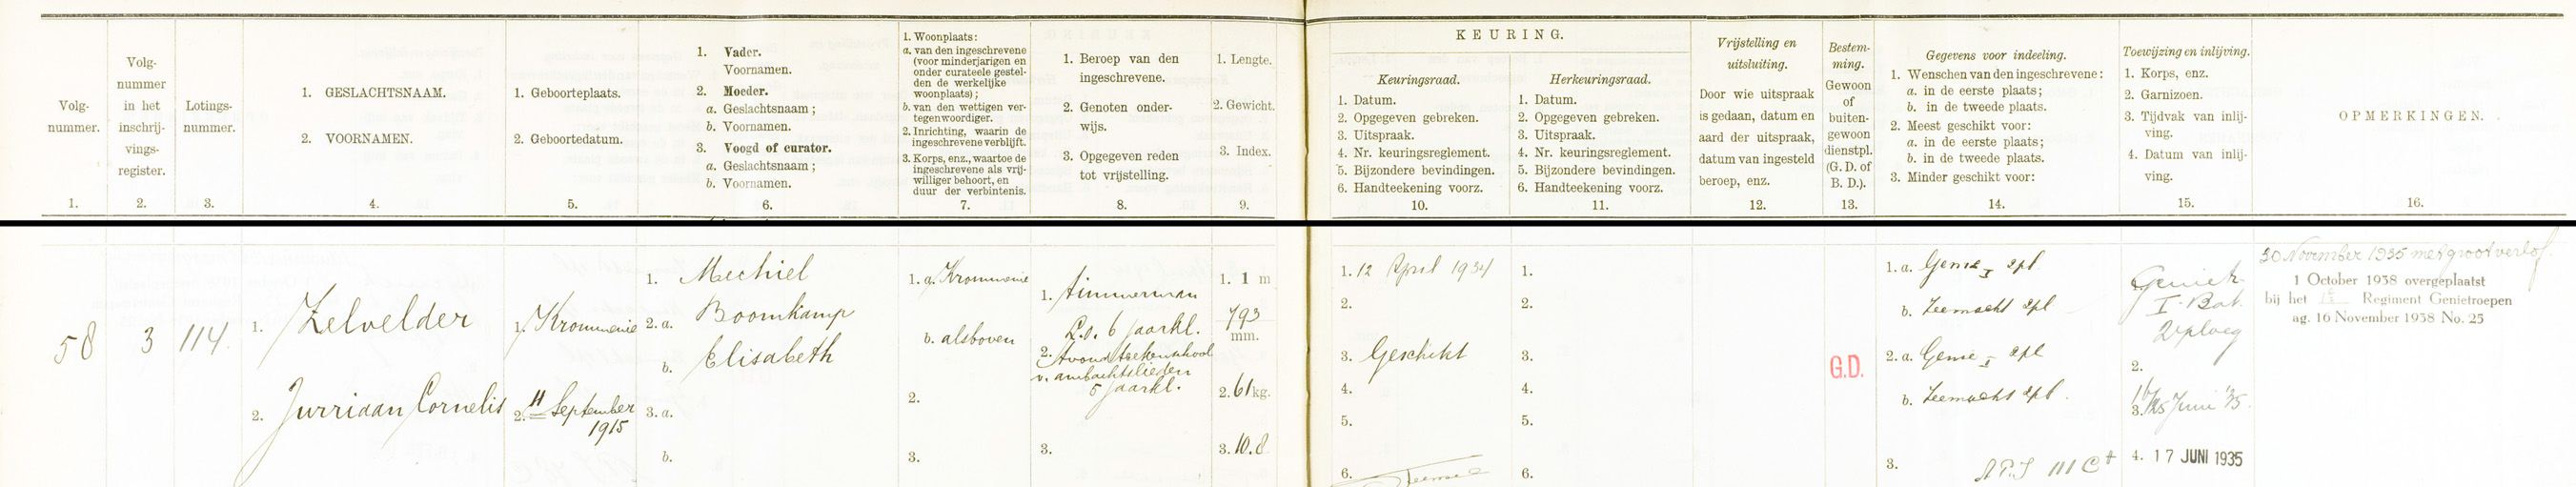 Volg-
nummer.
1.
Volg-
nummer
in het
inschrij-
vings-
register.
2.
Lotings-
nummer.
3.
1. GESLACHTSNAAM.
2. VOORNAMEN.
4.
1. Geboorteplaats.
2. Geboortedatum.
5.
1. Vader.
Voornamen.
2. Moeder.
a. Geslachtsnaam;
b. Voornamen.
3. Voogd of curator.
a. Geslachtsnaam;
b. Voornamen.
6.
1. Woonplaats:
a. van den ingeschrevene
(voor minderjarigen en
onder curateele gestel-
den de werkelijke
woonplaats);
b. van den wettigen ver-
tegenwoordiger.
2. Inrichting, waarin de
ingeschrevene verblijft.
3. Korps, enz., waartoe de
ingeschrevene als vrij-
williger behoort, en
duur der verbintenis.
7.
1. Beroep van den
ingeschrevene.
2. Genoten onder-
wijs.
3. Opgegeven reden
tot vrijstelling.
8.
1. Lengte.
2. Gewicht.
3. Index.
9.
KEURING.
Keuringsraad.
1. Datum.
2. Opgegeven gebreken.
3. Uitspraak.
4. Nr. keuringsreglement.
5. Bijzondere bevindingen.
6. Handteekening voorz.
10.
Herkeuringsraad.
1. Datum.
2. Opgegeven gebreken.
3. Uitspraak.
4. Nr. keuringsreglement.
5. Bijzondere bevindingen.
6. Handteekening voorz.
11.
Vrijstelling en
uitsluiting.
Door wie uitspraak
is gedaan, datum en
aard der uitspraak,
datum van ingesteld
beroep, enz.
12.
Bestem-
ming.
Gewoon
of
buiten-
gewoon
dienstpl.
(G. D. of
B. D.).
13.
Gegevens voor indeeling.
1. Wenschen van den ingeschrevene:
a. in de eerste plaats;
b. in de tweede plaats.
2. Meest geschikt voor:
a. in de eerste plaats;
b. in de tweede plaats.
3. Minder geschikt voor:
14.
Toewijzing en inlijving.
1. Korps, enz.
2. Garnizoen.
3. Tijdvak van inlij-
ving.
4. Datum van inlij-
ving.
15.
OPMERKINGEN.
16.
58
3
114.
1. Zelvelder
2. Jurriaan Cornelis
1. Krommenie
2. 11 September
1915
1. Mechiel
2. a. Boomkamp
b. Elisabeth
3. a.
b.
1. a. Krommenie
b. alsboven
2.
3.
1. timmerman
L.o. 6 jaarkl.
2. Avondteekenschool
v. ambachtslieden
5 jaarkl.
3.
1. 1 m
793
mm.
2. 61 kg.
3. 10.8
1. 12 April 1934
2.
3. Geschikt
4.
5.
6.
1.
2.
3.
4.
5.
6.
G.D.
1. a. Genie I 2pl.
b. Zeemacht 2pl
2. a. Genie I 2pl
b. Zeemacht 2pl.
3.
III C
Geniet.
I Bat.
2 Vploeg
2.
3. Juni '35.
4. 17 JUNI 1935
30 November 1935 met groot verlof.
1 October 1938 overgeplaatst
bij het Regiment Genietroepen
ag. 16 November 1938 No. 25